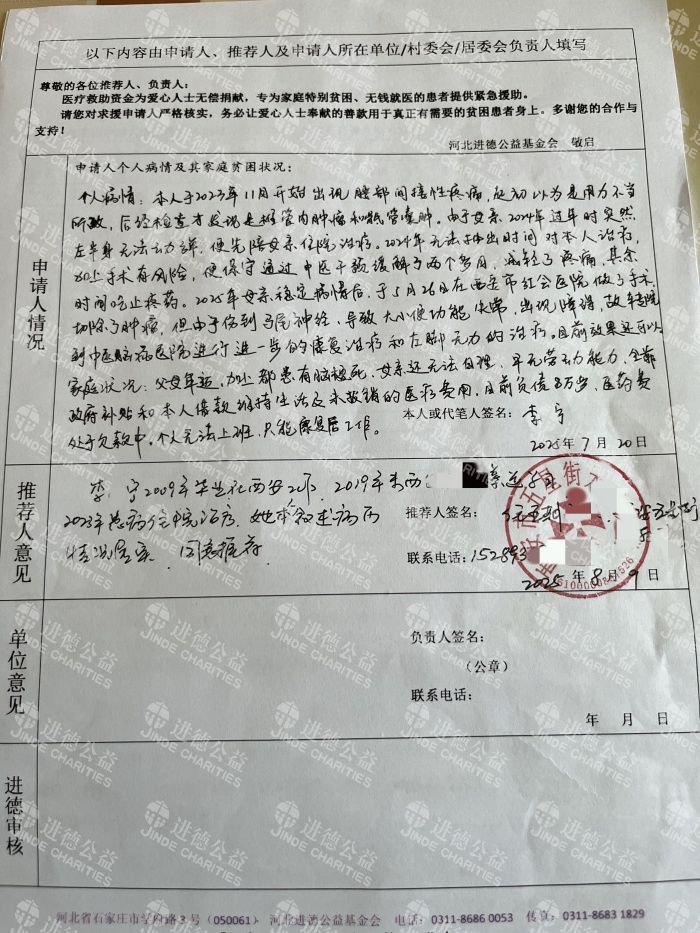 以下内容由申请人、推荐人及申请人所在单位/村委会/居委会负责人填写
尊敬的各位推荐人、负责人：
医疗救助资金为爱心人士无偿捐献，专为家庭特别贫困、无钱就医的患者提供紧急援助。
请您对求援申请人严格核实，务必让爱心人士奉献的善款用于真正有需要的贫困患者身上。多谢您的合作与
支持！
河北进德公益基金会 敬启
申请人情况
申请人个人病情及其家庭贫困状况：
个人病情：本人于2023年11月开始出现腰部间接性疼痛，起初以为是用力不当
所致，后经检查才发现是椎管内肿瘤和骶管囊肿。由于母亲2024年过年时突然
左半身无法动弹，便先陪母亲住院治疗。2024年无法抽出时间对本人治疗，
加上手术有风险，便保守通过中医干预缓解了两个多月，减轻了疼痛，其余
时间吃止疼药。2025年母亲稳定病情后，于5月26日在西安市红会医院做了手术，
切除了肿瘤，但由于伤到马尾神经，导致大小便功能失常，出现障碍，故转院
到中医脑病医院进行进一步的康复治疗和左脚无力的治疗。目前效果还可以
家庭状况：父母年迈，加上都患有脑梗死，母亲还无法自理，早无劳动能力，全靠
政府补贴和本人借款维持生活及未报销的医疗费用，目前负债8万多，医药费
处于欠款中，个人无法上班，只能康复后工作。
本人或代笔人签名：李宁
2025年7月20日
推荐人意见
李宁2009年毕业在西安，2019年
2023年患病住院治疗，她本叙述病历
情况属实，同意推荐
推荐人签名：
联系电话：152893
2025年8月9日
五里街
单位意见
负责人签名：
（公章）
联系电话：
年 月 日
进德审核
河北省石家庄市学府路3号（050061） 河北进德公益基金会 电话：0311-8686 0053 传真：0311-8683 1829
进德公益
JINDE CHARITIES